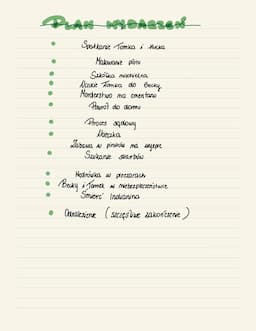 PLAN WYDARZEŃ
Spotkanie Tomka i Hucka
Malowanie płotu
Szkółka niedzielna
Uczucie Tomka do Becky
Morderstwo na cmentarzu
Powrót do domu
Proces sądowy
Ucieczka
Zabawa w piratów na wyspie
Szukanie skarbów
Wędrówka w pieczarach
Becky i Tomek w niebezpieczeństwie
Śmierć Indianina
Odnalezienie (szczęśliwe zakończenie)